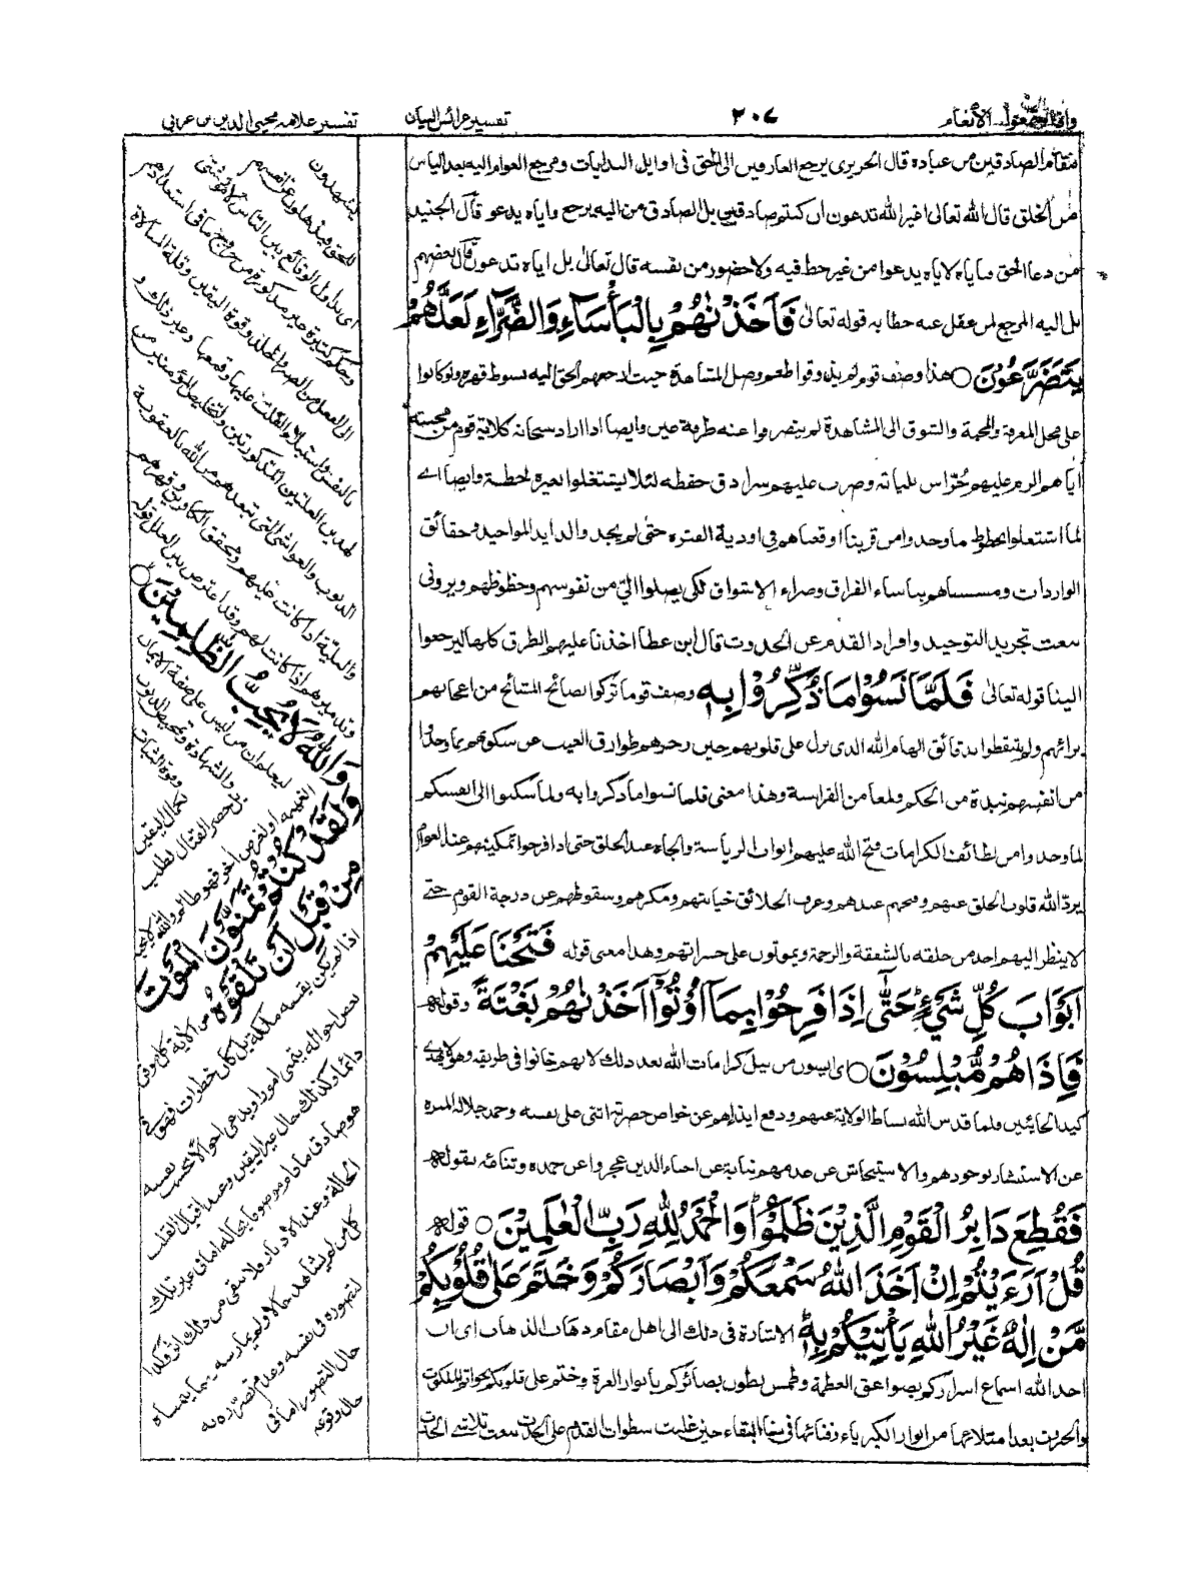 واذا سمعوا۔ الأنعام
٢٠٧
تفسير عرائس البيان
تفسير علامہ محيى الدين بن عربى
مقام الصادقين من عباده قال الحريرى يرجع العارفين الى الحق فى اوايل البدايات ومرجع العوام اليه بعد الياس
من الخلق قال الله تعالى اغير الله تدعون ان كنتم صادقين بل الصادق من اليه يرجع واياه يدعو قال الجنيد
من دعا الحق باياه لاياه يدعوا من غير حظ فيه ولا حضور من نفسه قال تعالى بل اياه تدعون قال بعضهم
بل اليه المرجع لمن عقل عنه خطابه قوله تعالى فَأَخَذْنٰهُمْ بِالْبَأْسَآءِ وَالضَّرَّآءِ لَعَلَّهُمْ
يَتَضَرَّعُوْنَ○ هذا وصف قوم لم يذوقوا طعم وصل المشاهدة حيث ارجعهم الحق اليه بسوط قهره ولو كانوا
على محل المعرفة والمحبة والشوق الى المشاهدة لم ينصرفوا عنه طرفة عين وايضا اذا اراد سبحانه كلاية قوم من محبته
اياهم الزم عليهم حُرّاس بلياته وضرب عليهم سرادق حفظه لئلا يشتغلوا بغيره لحظة وايضا اے
لما اشتغلوا بحظوظ ما وجدوا من قربنا اوقعناهم فى اودية الفترة حتى لم يجدوا لذايذ المواجيد وحقائق
الواردات ومسسناهم بباساء الفراق وضراء الاشتواق لكى يصلوا الىّ من نفوسهم وحظوظهم ويرونى
بنعت تجريد التوحيد وافراد القدم عن الحدوث قال ابن عطا اخذنا عليهم الطرق كلها ليرجعوا
الينا قوله تعالى فَلَمَّا نَسُوْا مَا ذُكِّرُوْا بِهٖ وصف قوما تركوا نصائح المشائخ من اعجابهم
برائهم ولم يتقطوا بدقائق الهام الله الذى نزل على قلوبهم حين زجرهم طوارق الغيب عن سكونهم بما وجدوا
من انفسهم نبذة من الحكم ولمعا من الفراسة وهذا معنى فلما نسوا ما ذكروا به ولما سكنوا الى انفسكم
لما وجدوا من لطائف الكرامات فتح الله عليهم ابواب الرياسة والجاه عند الخلق حتى اذا فرحوا تمكينهم عند العوام
يردّ الله قلوب الخلق عنهم وقبحهم عندهم وعرف الخلائق خيانتهم ومكرهم وسقوطهم عن درجة القوم حتے
لا ينظر اليهم احد من خلقه بالشفقة والرحمة ويموتون على حسراتهم وهذا معنى قوله فَتَحْنَا عَلَيْهِمْ
اَبْوَابَ كُلِّ شَيْءٍ حَتّٰى اِذَا فَرِحُوْا بِمَآ اُوْتُوْا اَخَذْنٰهُمْ بَغْتَةً وقوله
فَاِذَا هُمْ مُّبْلِسُوْنَ○ اى ايسون من نيل كرامات الله بعد ذلك لانهم خانوا فى طريقه وهو لا يهدى
كيد الخائنين فلما قدس الله بساط الولاية عنهم ودفع ايذاهم عن خواص حضرته اثنى على نفسه وحمد جلاله المنزه
عن الاستبشار بوجودهم والاستيحاش عن عدمهم نيابة عن احباء الذين عجزوا عن حمده وثنائه بقوله
فَقُطِعَ دَابِرُ الْقَوْمِ الَّذِيْنَ ظَلَمُوْا وَالْحَمْدُ لِلّٰهِ رَبِّ الْعٰلَمِيْنَ ○ قوله
قُلْ اَرَءَيْتُمْ اِنْ اَخَذَ اللّٰهُ سَمْعَكُمْ وَاَبْصَارَكُمْ وَخَتَمَ عَلٰى قُلُوْبِكُمْ
مَّنْ اِلٰهٌ غَيْرُ اللّٰهِ يَأْتِيْكُمْ بِهٖ الاشارة فى ذلك الى اهل مقام ذهاب الذهاب اى ان
اخذ الله اسماع اسراركم بصواعق العظمة وطمس بطون بصائركم بانوار العزة وختم على قلوبكم بخواتم الملكوت
والجبروت بعد امتلائها من انوار الكبرياء وفنائها فى بقاء البقاء حين غلبت سطوات القدم على الحدث بنعت تلاشے الحدث
يشهدون
للحق فيذهلون عن انفسهم
اى نداول الوقائع بين الناس لامور شتى
وحكم كثيرة غير مذكورة من خروج ما فى استعدادهم
الى الفعل من الصبر والجلد وقوة اليقين وقلة المبالاة
بالنفس واستيلاء القلب عليها وقمعها وغير ذلك و
لهذين العلتين المذكورتين ولتخليص المؤمنين من
الذنوب والغواشى التى تبعدهم من الله بالعقوبة
والبلية اذا كانت عليهم ومحق الكافرين وقهرهم
وتدميرهم اذا كانت لهم وقد اعترض بين العلل قوله
وَاللّٰهُ لَا يُحِبُّ الظّٰلِمِيْنَ○
ليعلم ان من ليس على صفة الايمان
والشهادة وتمحيص الذنوب
وقوة الثبات
لكمال اليقين
حضر القتال لطلب
الغنيمة او لغرض اخر فهو ظالم والله لا يحبه
وَلَقَدْ كُنْتُمْ تَمَنَّوْنَ الْمَوْتَ
مِنْ قَبْلِ اَنْ تَلْقَوْهُ الآية كل موقن
اذا لم يكن يقينه ملكة بل كان خطرات فهو فى
بعض احواله يتمنى امورا ويدعى احوالا بحسب نفسه
دائما وكذلك حال غير اليقين وعند اقبال القلب
هو صادق ما دام موصوفا بحاله اما فى غير تلك
الحالة وعند الادبار فلا يبقى من ذلك اثر وكذا
كل من لم يشاهد حالا ولم يمارسه ربما يتمناه
لتصوره فى نفسه وعدم تضرره به
حال التصور اما فى
حال وقوعه